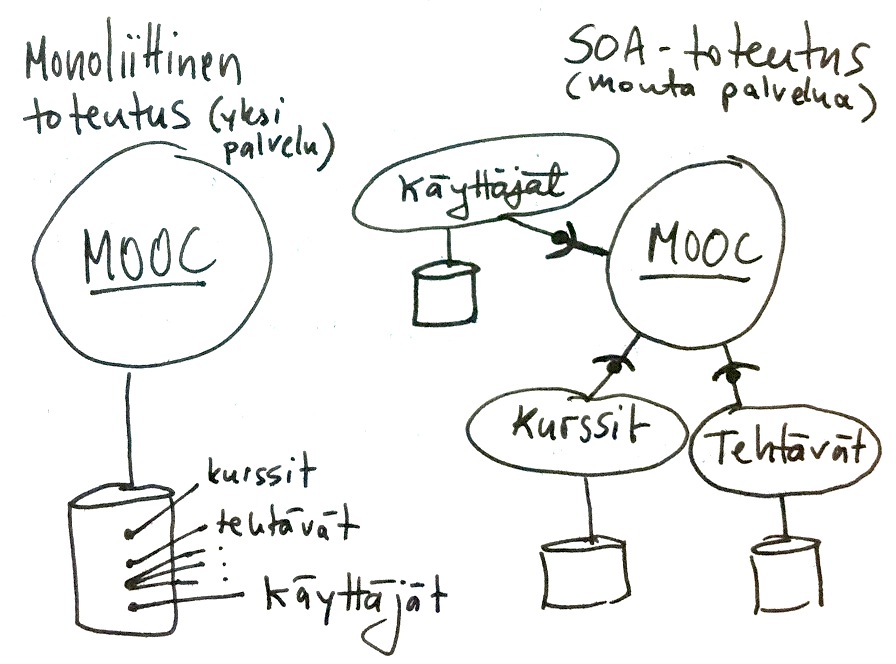 Monoliittinen
toteutus (yksi
palvelu)
MOOC
kurssit
tehtävät
käyttäjät
SOA-toteutus
(monta palvelua)
Käyttäjät
MOOC
Kurssit
Tehtävät